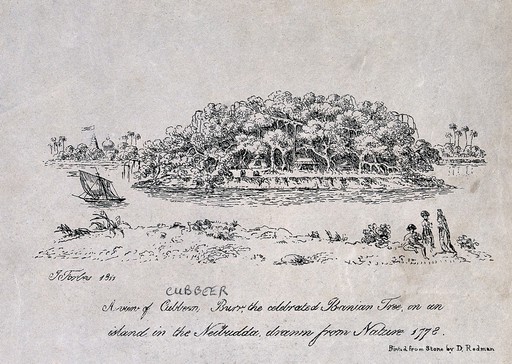 J. Forbes 1811
CUBBEER
A view of Cubbeer, Burr, the celebrated Banian Tree, on an
island in the Nerbudda, drawn from Nature 1778.
Printed from Stone by D. Redman